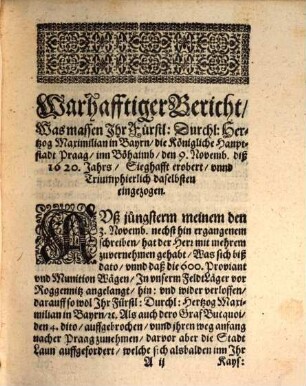 Warhafftiger Bericht/
Was massen Ihr Fürstl: Durchl: Her-
tzog Maximilian in Bayrn/ die Königliche Haupt-
stadt Praag/ inn Böhaimb/ den 9. Novemb. diß
1620. Jahrs/ Sieghafft erobert/ vnnd
Triumphierlich daselbsten
eingezogen.
AVß jüngsterm meinem den
3. Novemb. nechst hin ergangenem
schreiben/ hat der Herr mit mehrem
zuvernehmen gehabt/ Was sich biß
dato/ vnnd daß die 600. Proviant
vnd Munition Wägen/ In vnserm FeldtLäger vor
Roggennitz angelangt/ hin: vnd wider verloffen/
darauff so wol Ihr Fürstl: Durchl: Hertzog Maxi-
milian in Bayrn/ ꝛc. Als auch dero Graf Bucquoi/
den 4. dito/ auffgebrochen/ vnnd ihren weg anfang
nacher Praag zunehmen/ darvor aber die Stadt
Laun auffgefordert/ welche sich alsbalden inn Ihr
A ij Kays: